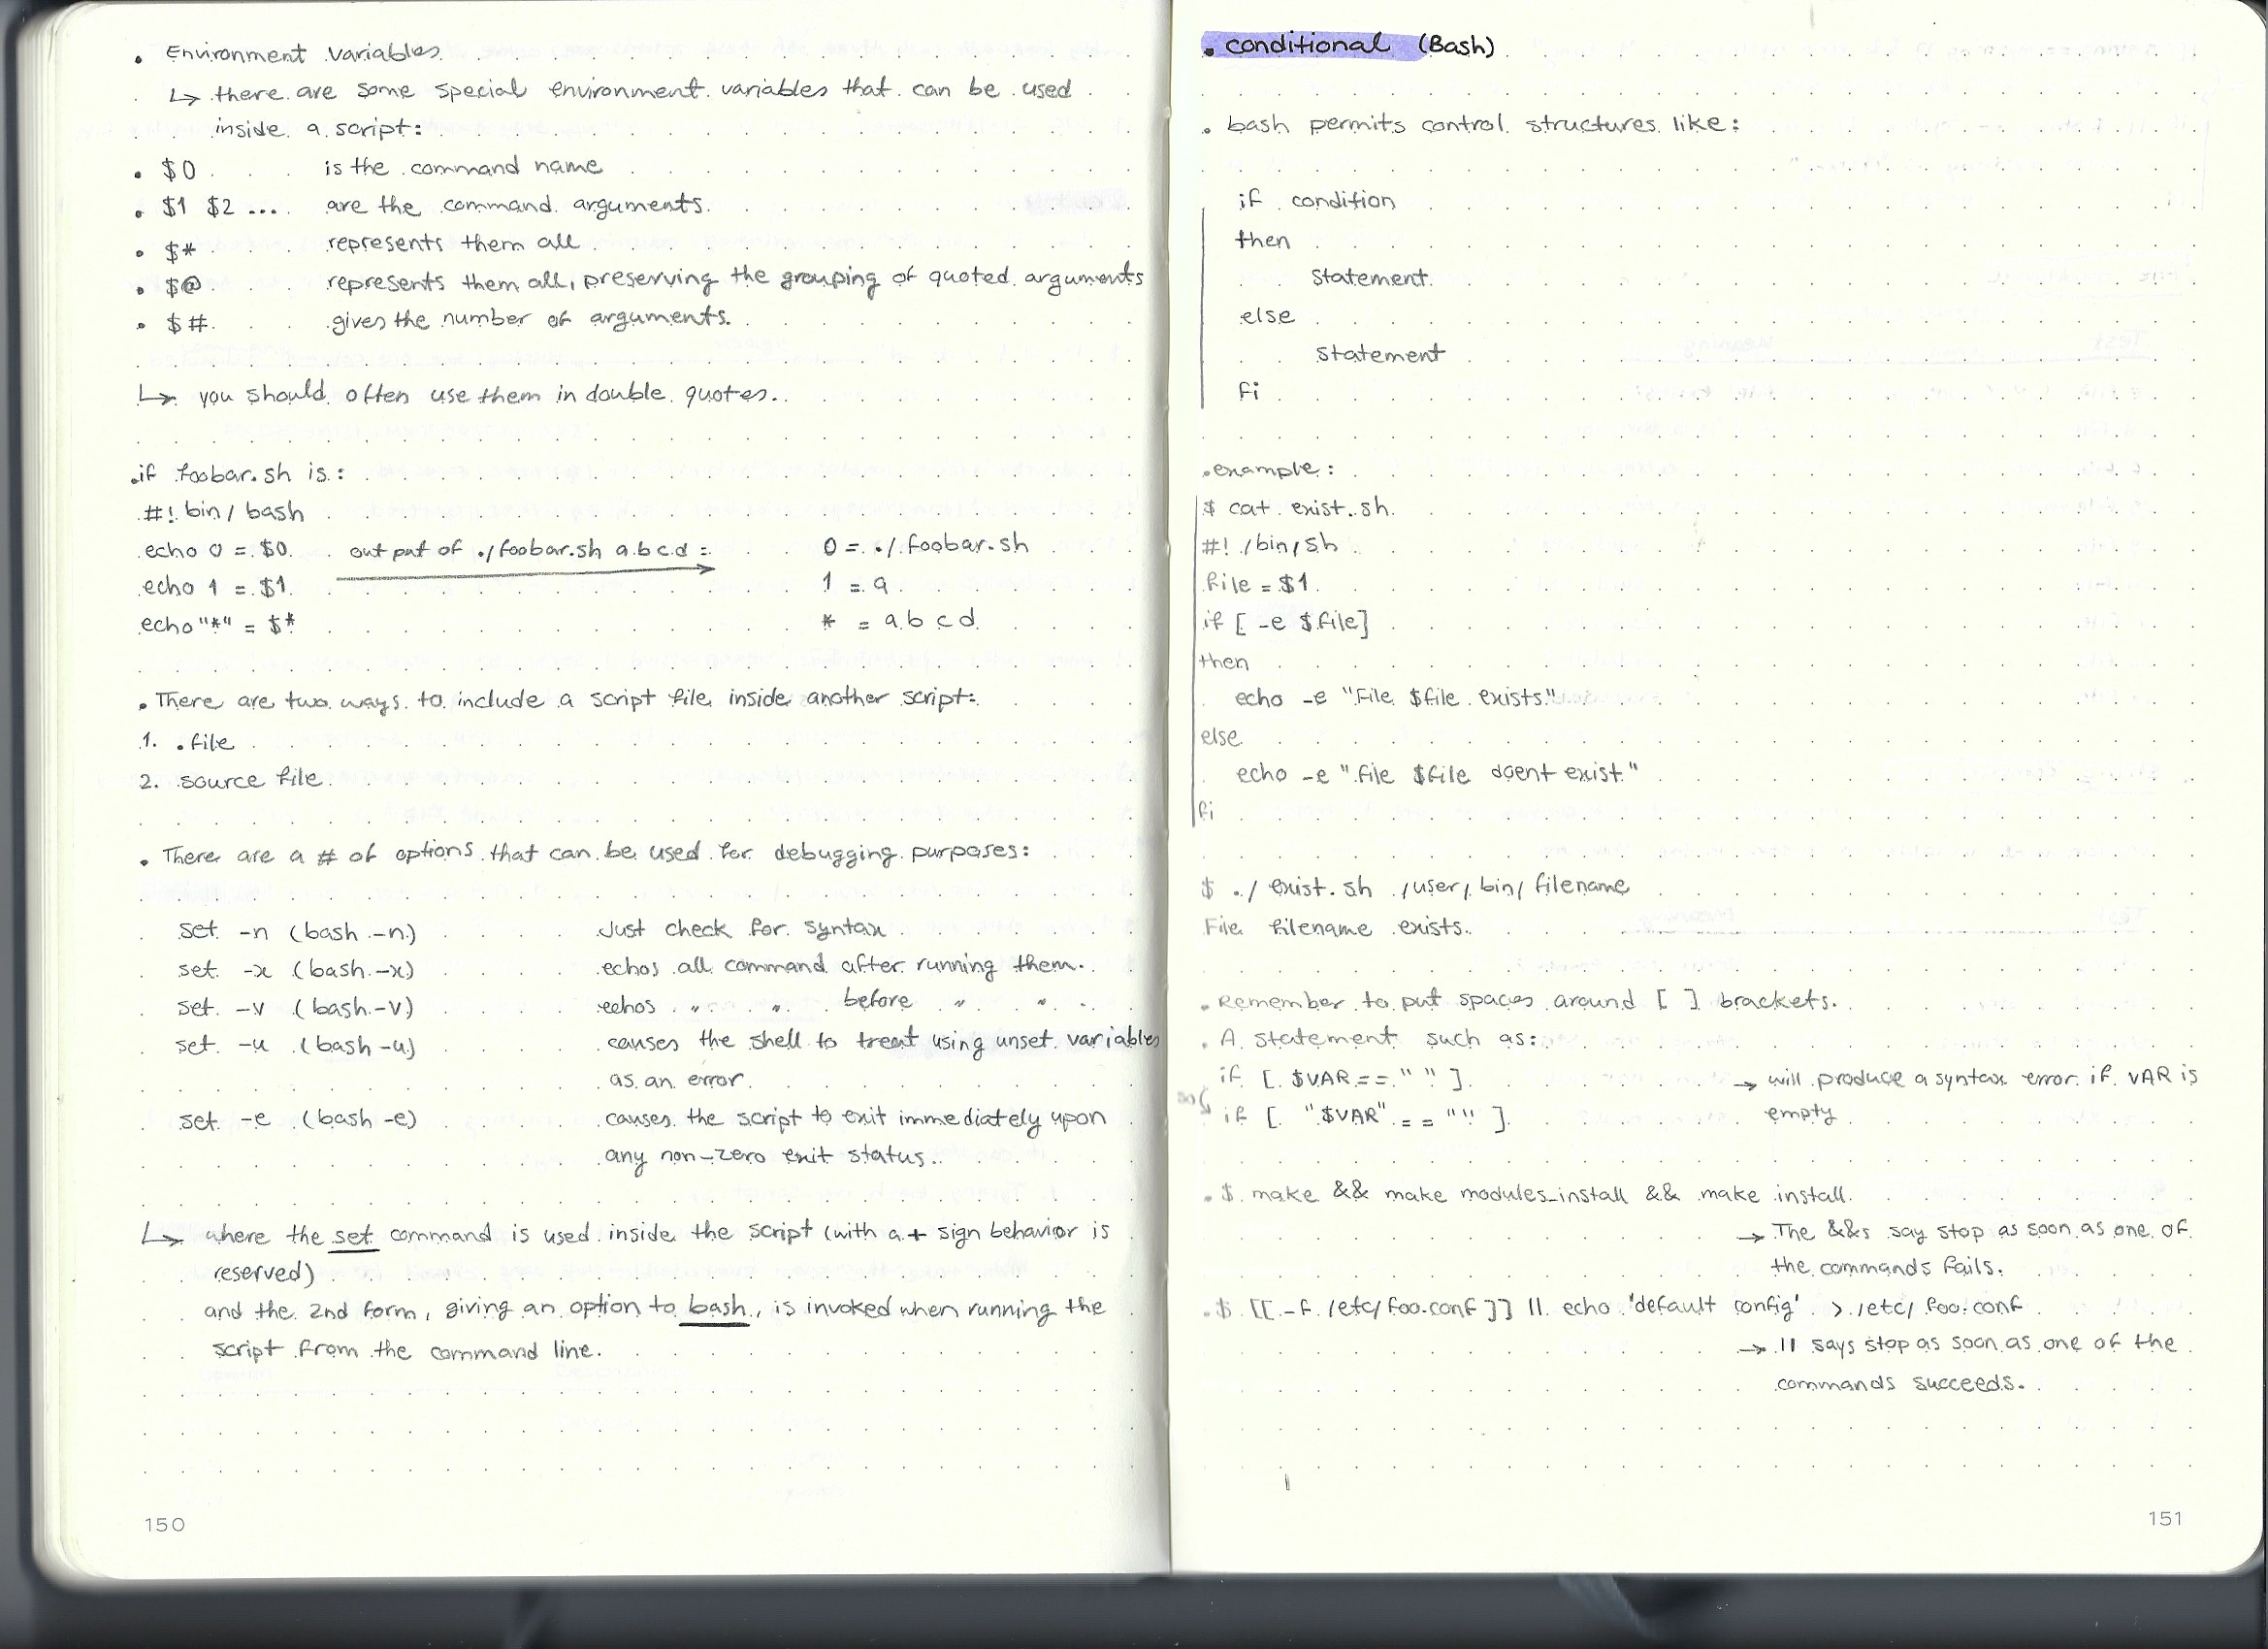 • Environment variables
↳ there are some special environment variables that can be used
inside a script:
• $0 is the command name
• $1 $2 ... are the command arguments.
• $* represents them all
• $@ represents them all, preserving the grouping of quoted arguments
• $# gives the number of arguments.
↳ you should often use them in double quotes.
• if foobar.sh is:
#! bin/bash
echo 0 = $0 output of ./foobar.sh a b c d : 0 = ./foobar.sh
echo 1 = $1 1 = a
echo "*" = $* * = a b c d
• There are two ways to include a script file inside another script:
1. . file
2. source file
• There are a # of options that can be used for debugging purposes:
set -n (bash -n) Just check for syntax
set -x (bash -x) echos all command after running them.
set -v (bash -v) echos " " before " " .
set -u (bash -u) causes the shell to treat using unset variables
as an error
set -e (bash -e) causes the script to exit immediately upon
any non-zero exit status.
↳ where the set command is used inside the script (with a + sign behavior is
reserved)
and the 2nd form, giving an option to bash, is invoked when running the
script from the command line.
150
• conditional (Bash)
• bash permits control structures like:
if condition
then
statement
else
statement
fi
• example:
$ cat exist.sh
#! /bin/sh
file = $1
if [ -e $file]
then
echo -e "File $file exists"
else
echo -e "file $file doent exist"
fi
$ ./exist.sh /user/bin/filename
File filename exists.
• Remember to put spaces around [ ] brackets.
• A statement such as:
if [ $VAR == " " ] → will produce a syntax error if VAR is
if [ "$VAR" == "" ] empty
• $ make && make modules_install && make install
→ The &&s say stop as soon as one of
the commands fails.
• $ [[ -f /etc/foo.conf ]] || echo 'default config' > /etc/foo.conf
→ || says stop as soon as one of the
commands succeeds.
151